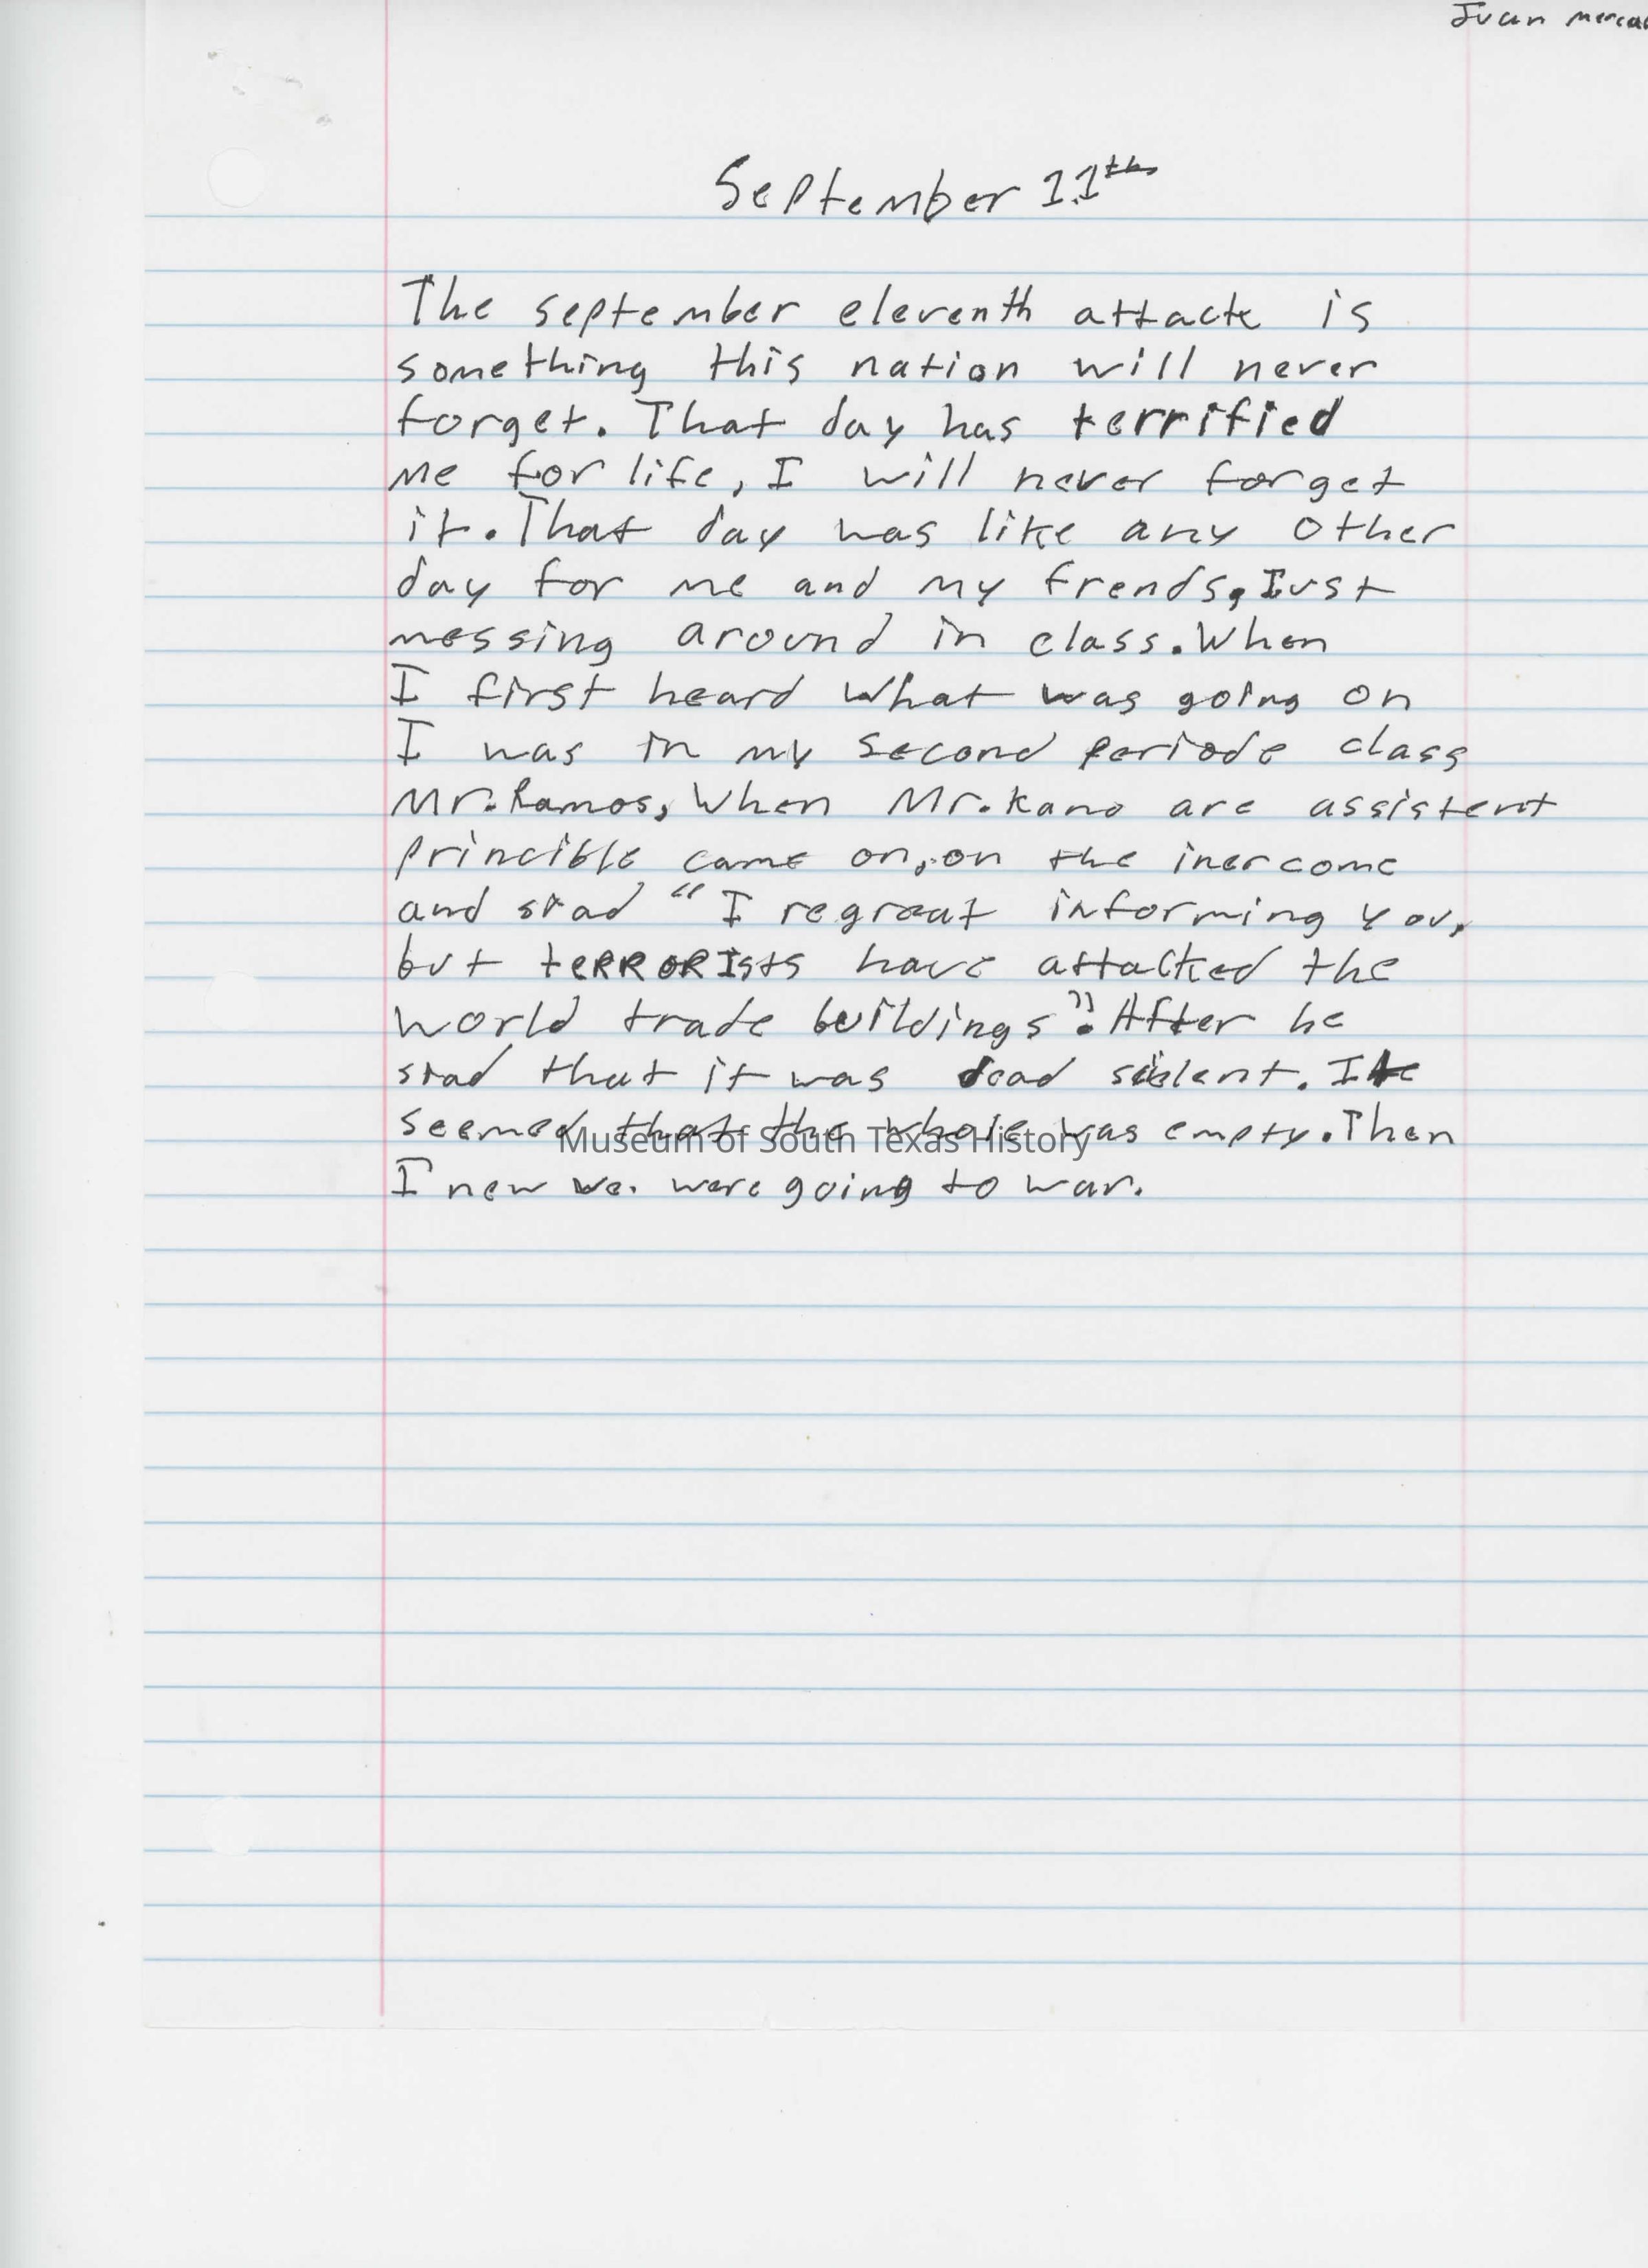 Juan Merca
September 11th
The september eleventh attack is
something this nation will never
forget. That day has terrified
me for life, I will never forget
it. That day was like any other
day for me and my frends, Just
messing around in class. When
I first heard what was going on
I was in my second periode class
Mr. Ramos, When Mr. Kano are assistent
princible came on, on the inercome
and siad "I regreat informing you,
but teRRORIsts have attacked the
world trade buildings". After he
siad that it was dead silent. It
seemed that the whole was empty. Then
Museum of South Texas History
I new we were going to war.